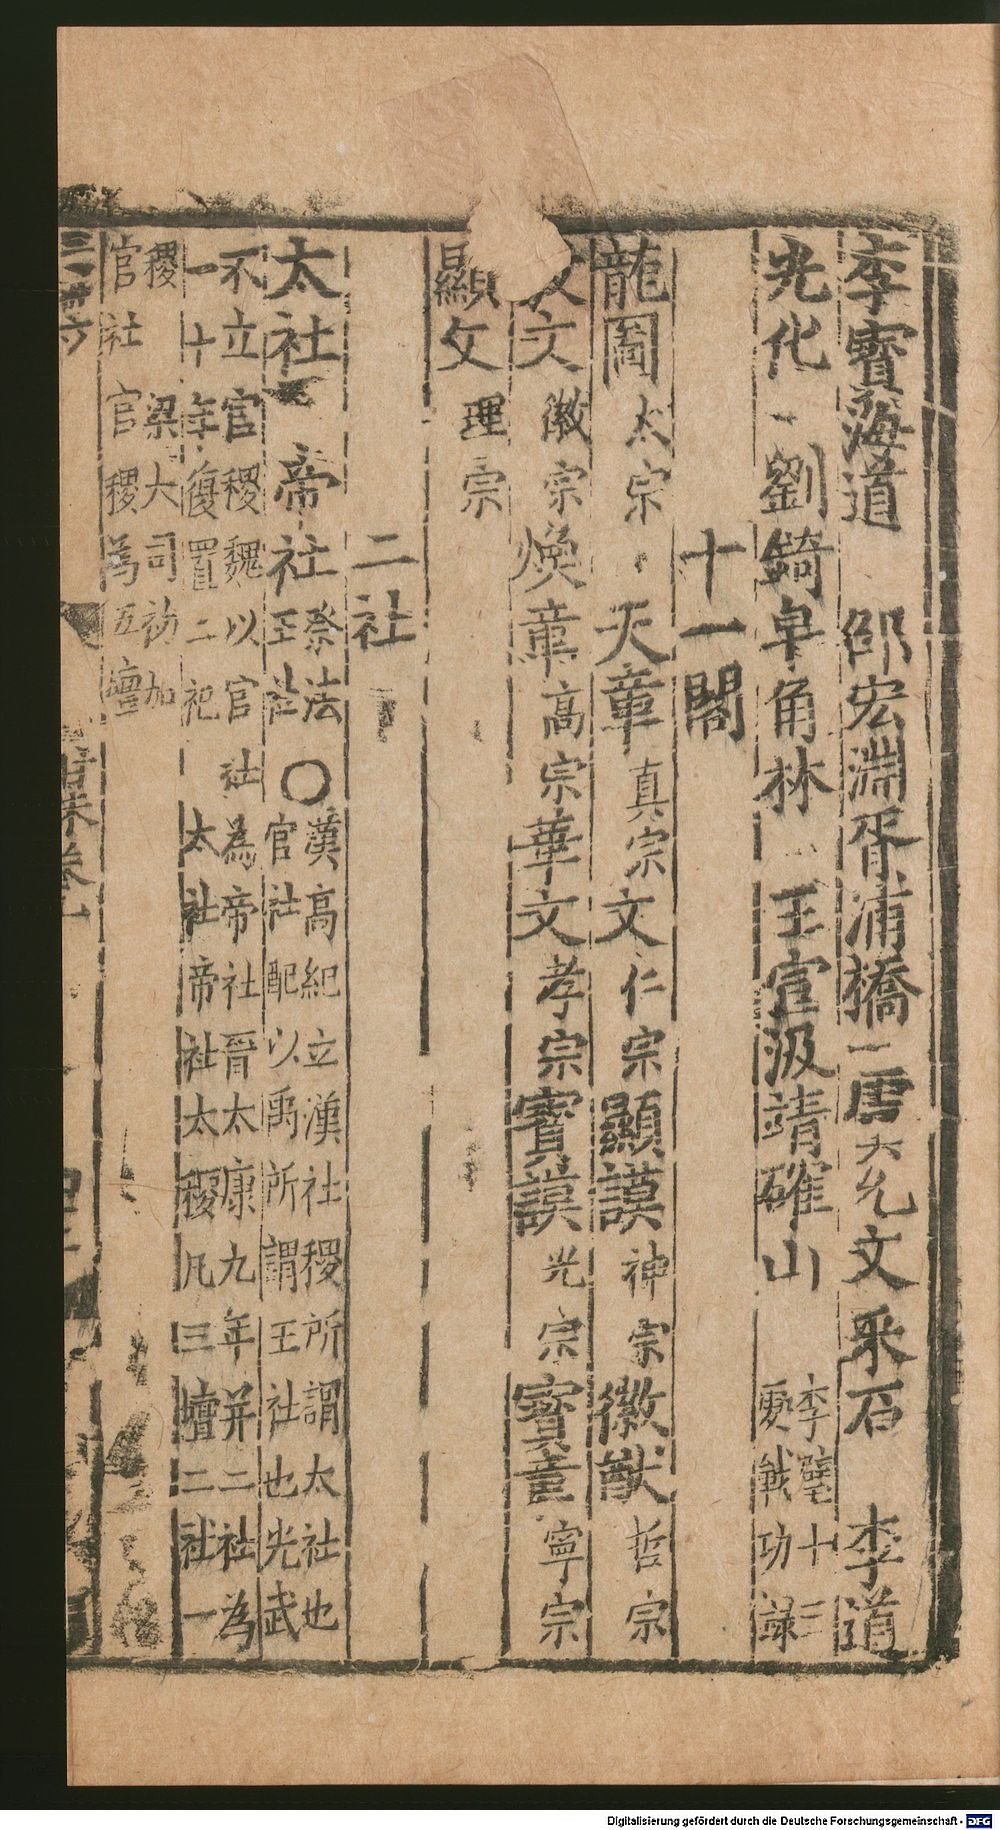 李寳海道　邵宏淵胥浦橋　虞允文采石　李道
光化　劉錡皐角林　王宣汲靖確山　李壁十三
處戰功录
十一閣
龍圖太宗　天章真宗文仁宗顯謨神宗徽猷哲宗
文徽宗煥章高宗華文孝宗寳謨光宗寳章寧宗
顯文理宗
二社
太社　帝社祭法　○漢高紀立漢社稷所謂太社也
王社　官社配以禹所謂王社也光武
不立官稷魏以官社為帝社晉太康九年并二社為
一十年復置二祀　太社帝社太稷凡三壇二社一
稷　梁大同初加
官社官稷為五壇
Digitalisierung gefördert durch die Deutsche Forschungsgemeinschaft - DFG